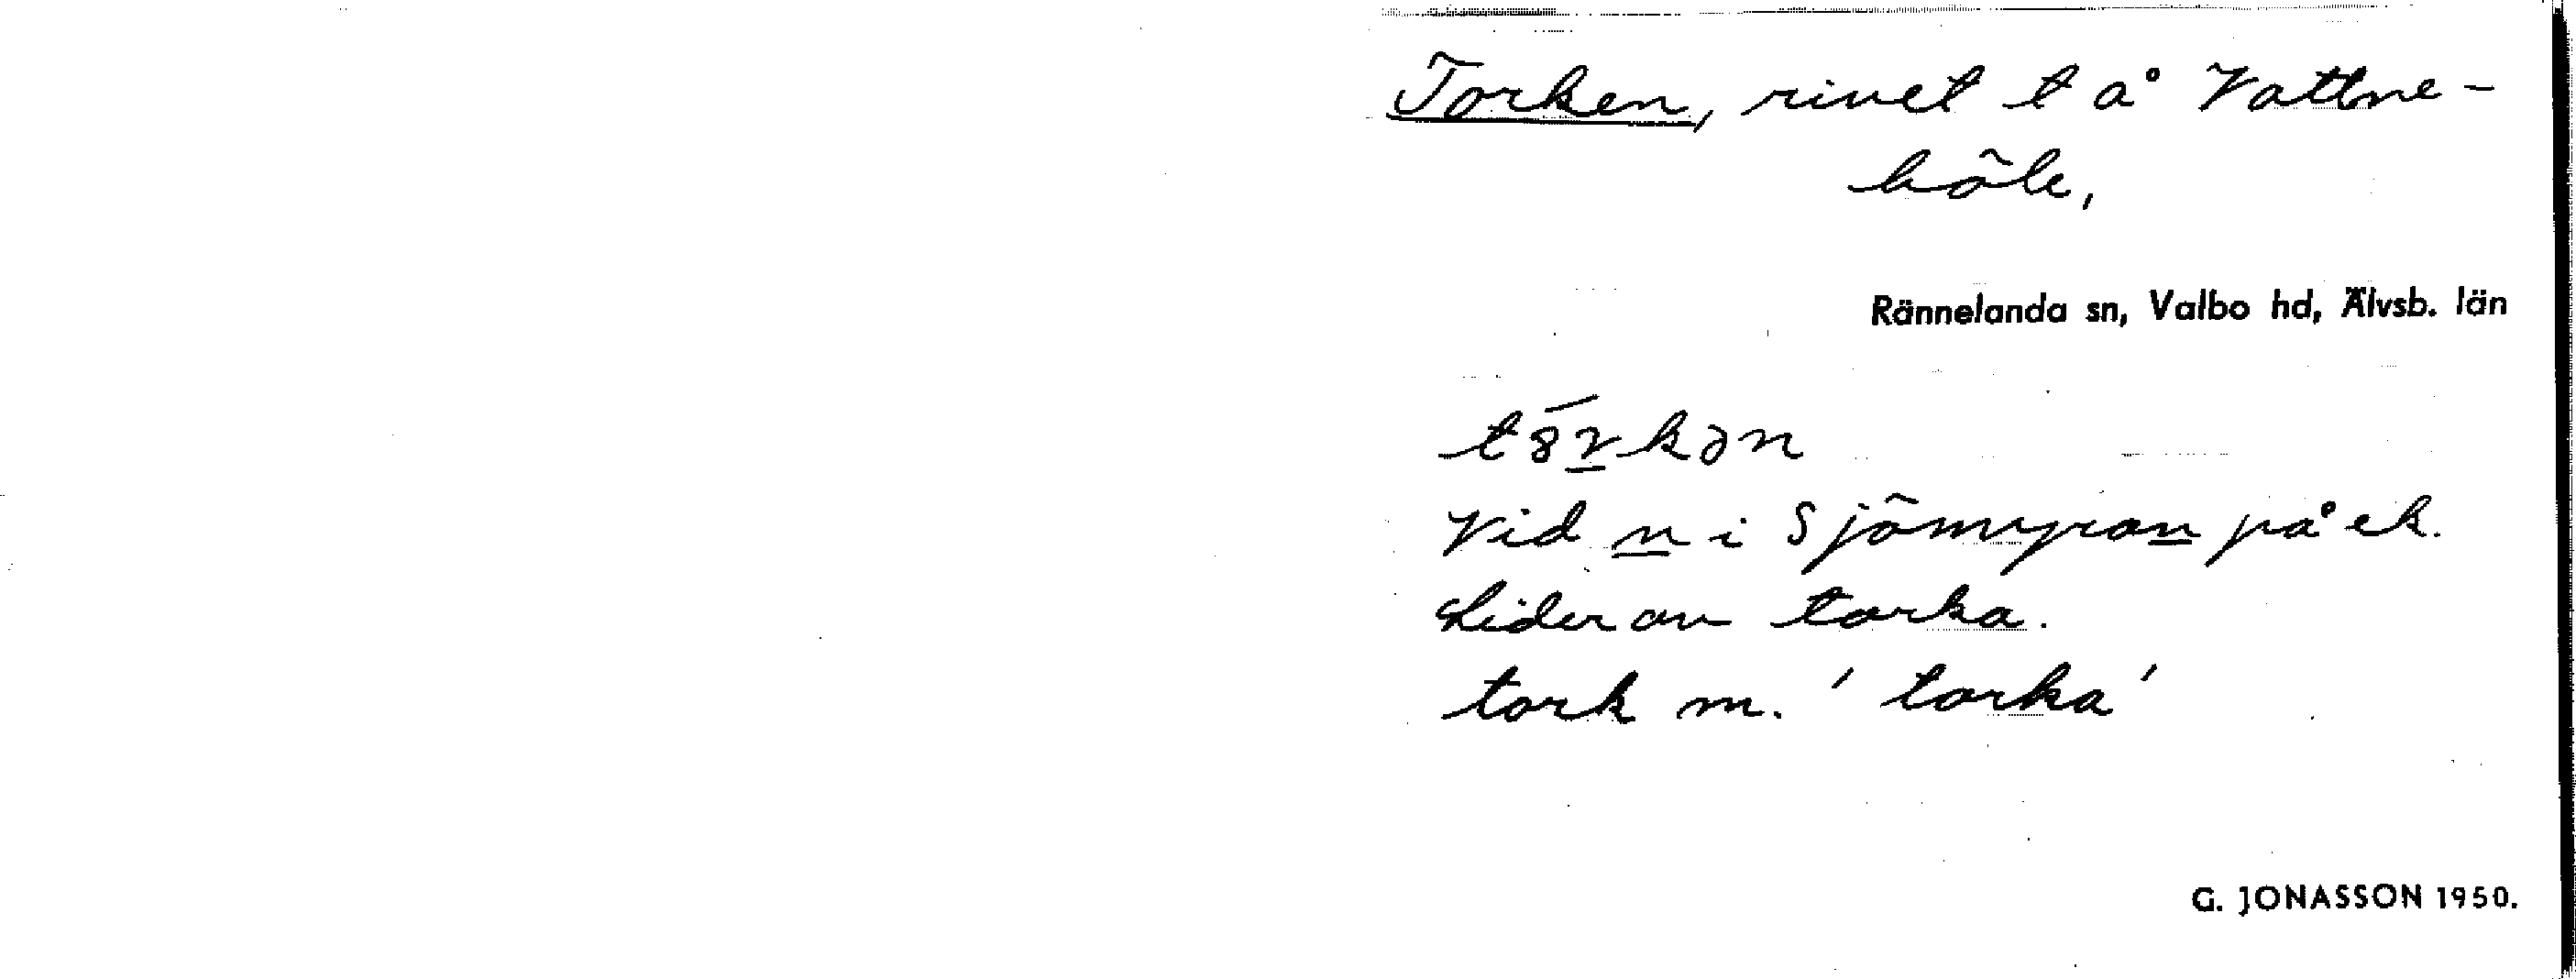 Torken, rivet t å Vattne-
höle,
Rännelanda sn, Valbo hd, Älvsb. län
Vid n i Sjömyran på ek.
Lider av torka.
tork m. 'torka'
G. JONASSON 1950.